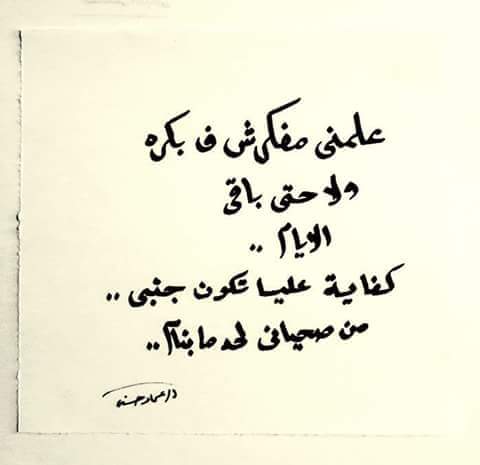 علمنى مفكرش ف بكره
ولا حتى باقى
الايام ..
كفاية عليا تكون جنبى ..
من صحيانى لحد ما بنام ..